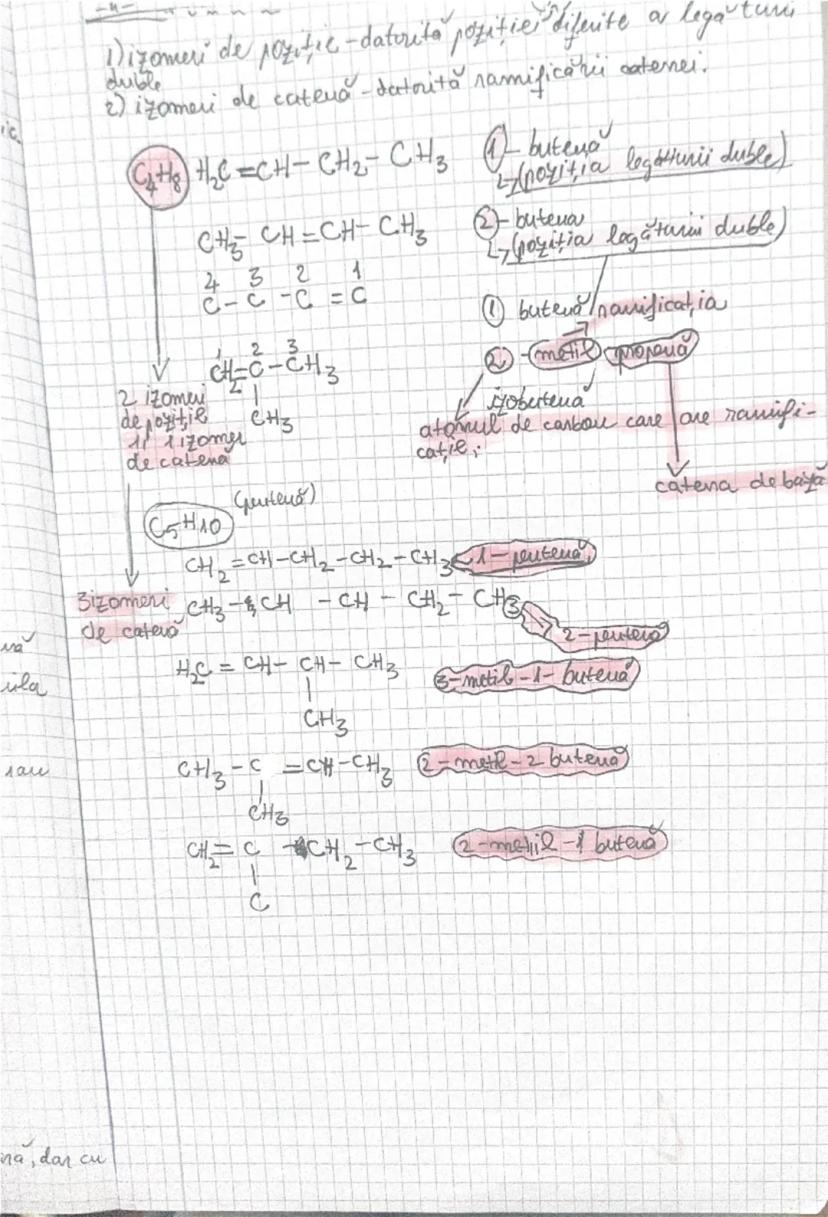 1) izomeri de poziție-datorită poziției diferite a legăturii
duble
2) izomeri de catenă-datorită ramificării catenei.
C4H8 H2C=CH-CH2-CH3 1-butenă
↳(poziția legăturii duble)
CH3-CH=CH-CH3 2-butena
↳(poziția legăturii duble)
4 3 2 1
C-C-C=C 1 butenă ramificația
1 2 3
CH2=C-CH3 2-metil propenă
CH3 izobutenă
2 izomeri
de poziție
și 1 izomer
de catenă
atomul de carbon care are ramifi-
cație;
catena de bază
C5H10 (pentenă)
CH2=CH-CH2-CH2-CH3 1-pentenă
3 izomeri
de catenă
CH3-CH-CH-CH2-CH3
2-pentenă
H2C=CH-CH-CH3 3-metil-1-butenă
CH3
CH3-C=CH-CH3 2-metil-2 butenă
CH3
CH2=C-CH2-CH3 2-metil-1 butenă
C
ic.
nă
ula
sau
nă, dar cu